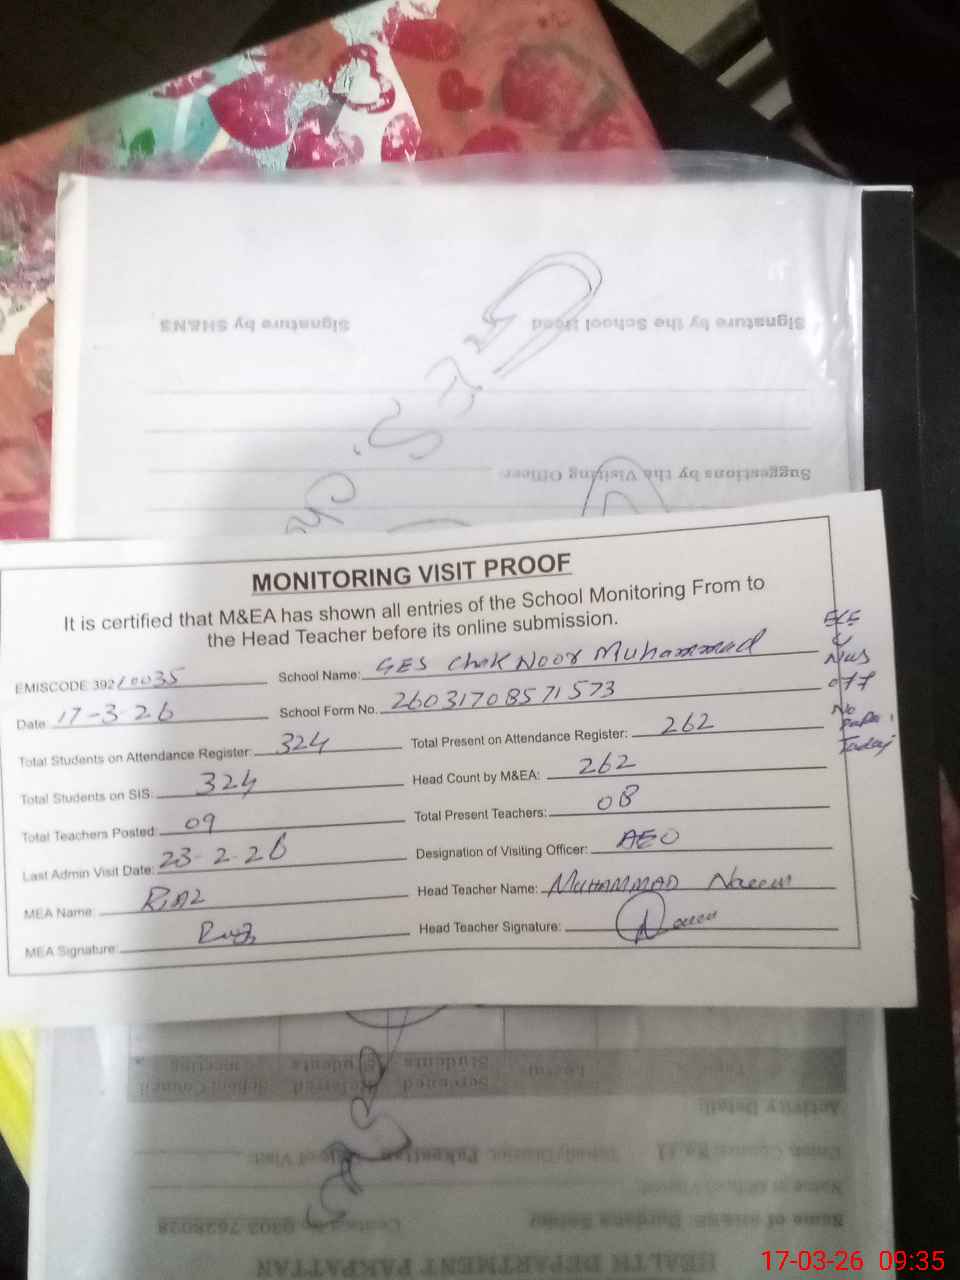 Signature by SH&NS Signature by the School Head
Suggestions by the Visiting Officer
MONITORING VISIT PROOF
It is certified that M&EA has shown all entries of the School Monitoring From to
the Head Teacher before its online submission.
EMISCODE 39210035 School Name: GES Chak Noor Muhammad
Date: 17-3-26 School Form No. 26031708571573
Total Students on Attendance Register: 324 Total Present on Attendance Register: 262
Total Students on SIS: 324 Head Count by M&EA: 262
Total Teachers Posted: 09 Total Present Teachers: 08
Last Admin Visit Date: 23-2-26 Designation of Visiting Officer: AEO
MEA Name: Riaz Head Teacher Name: MUHAMMAD Naeem
MEA Signature: Riaz Head Teacher Signature: Naeem
ECE
off
No
Today
Students Students meeting
Screened Referred School Council
Activity Detail:
Union Council No. Tehsil/District: Pakpattan Date of Visit:
Name of School Visited:
Name of SH&NS: Contact No 0303 7628028
HEALTH DEPARTMENT PAKPATTAN
17-03-26 09:35